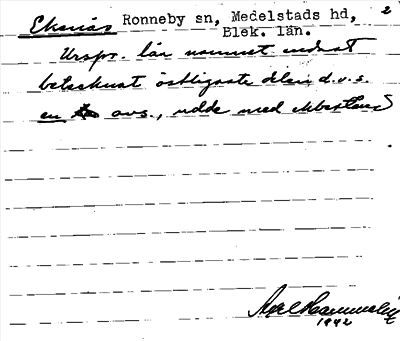 Ekenäs Ronneby sn, Medelstads hd, 2
Blek. län.
Urspr. lär namnet endast
betecknat östligaste delen d.v.s.
en avs., udde med ekbestånd
1942